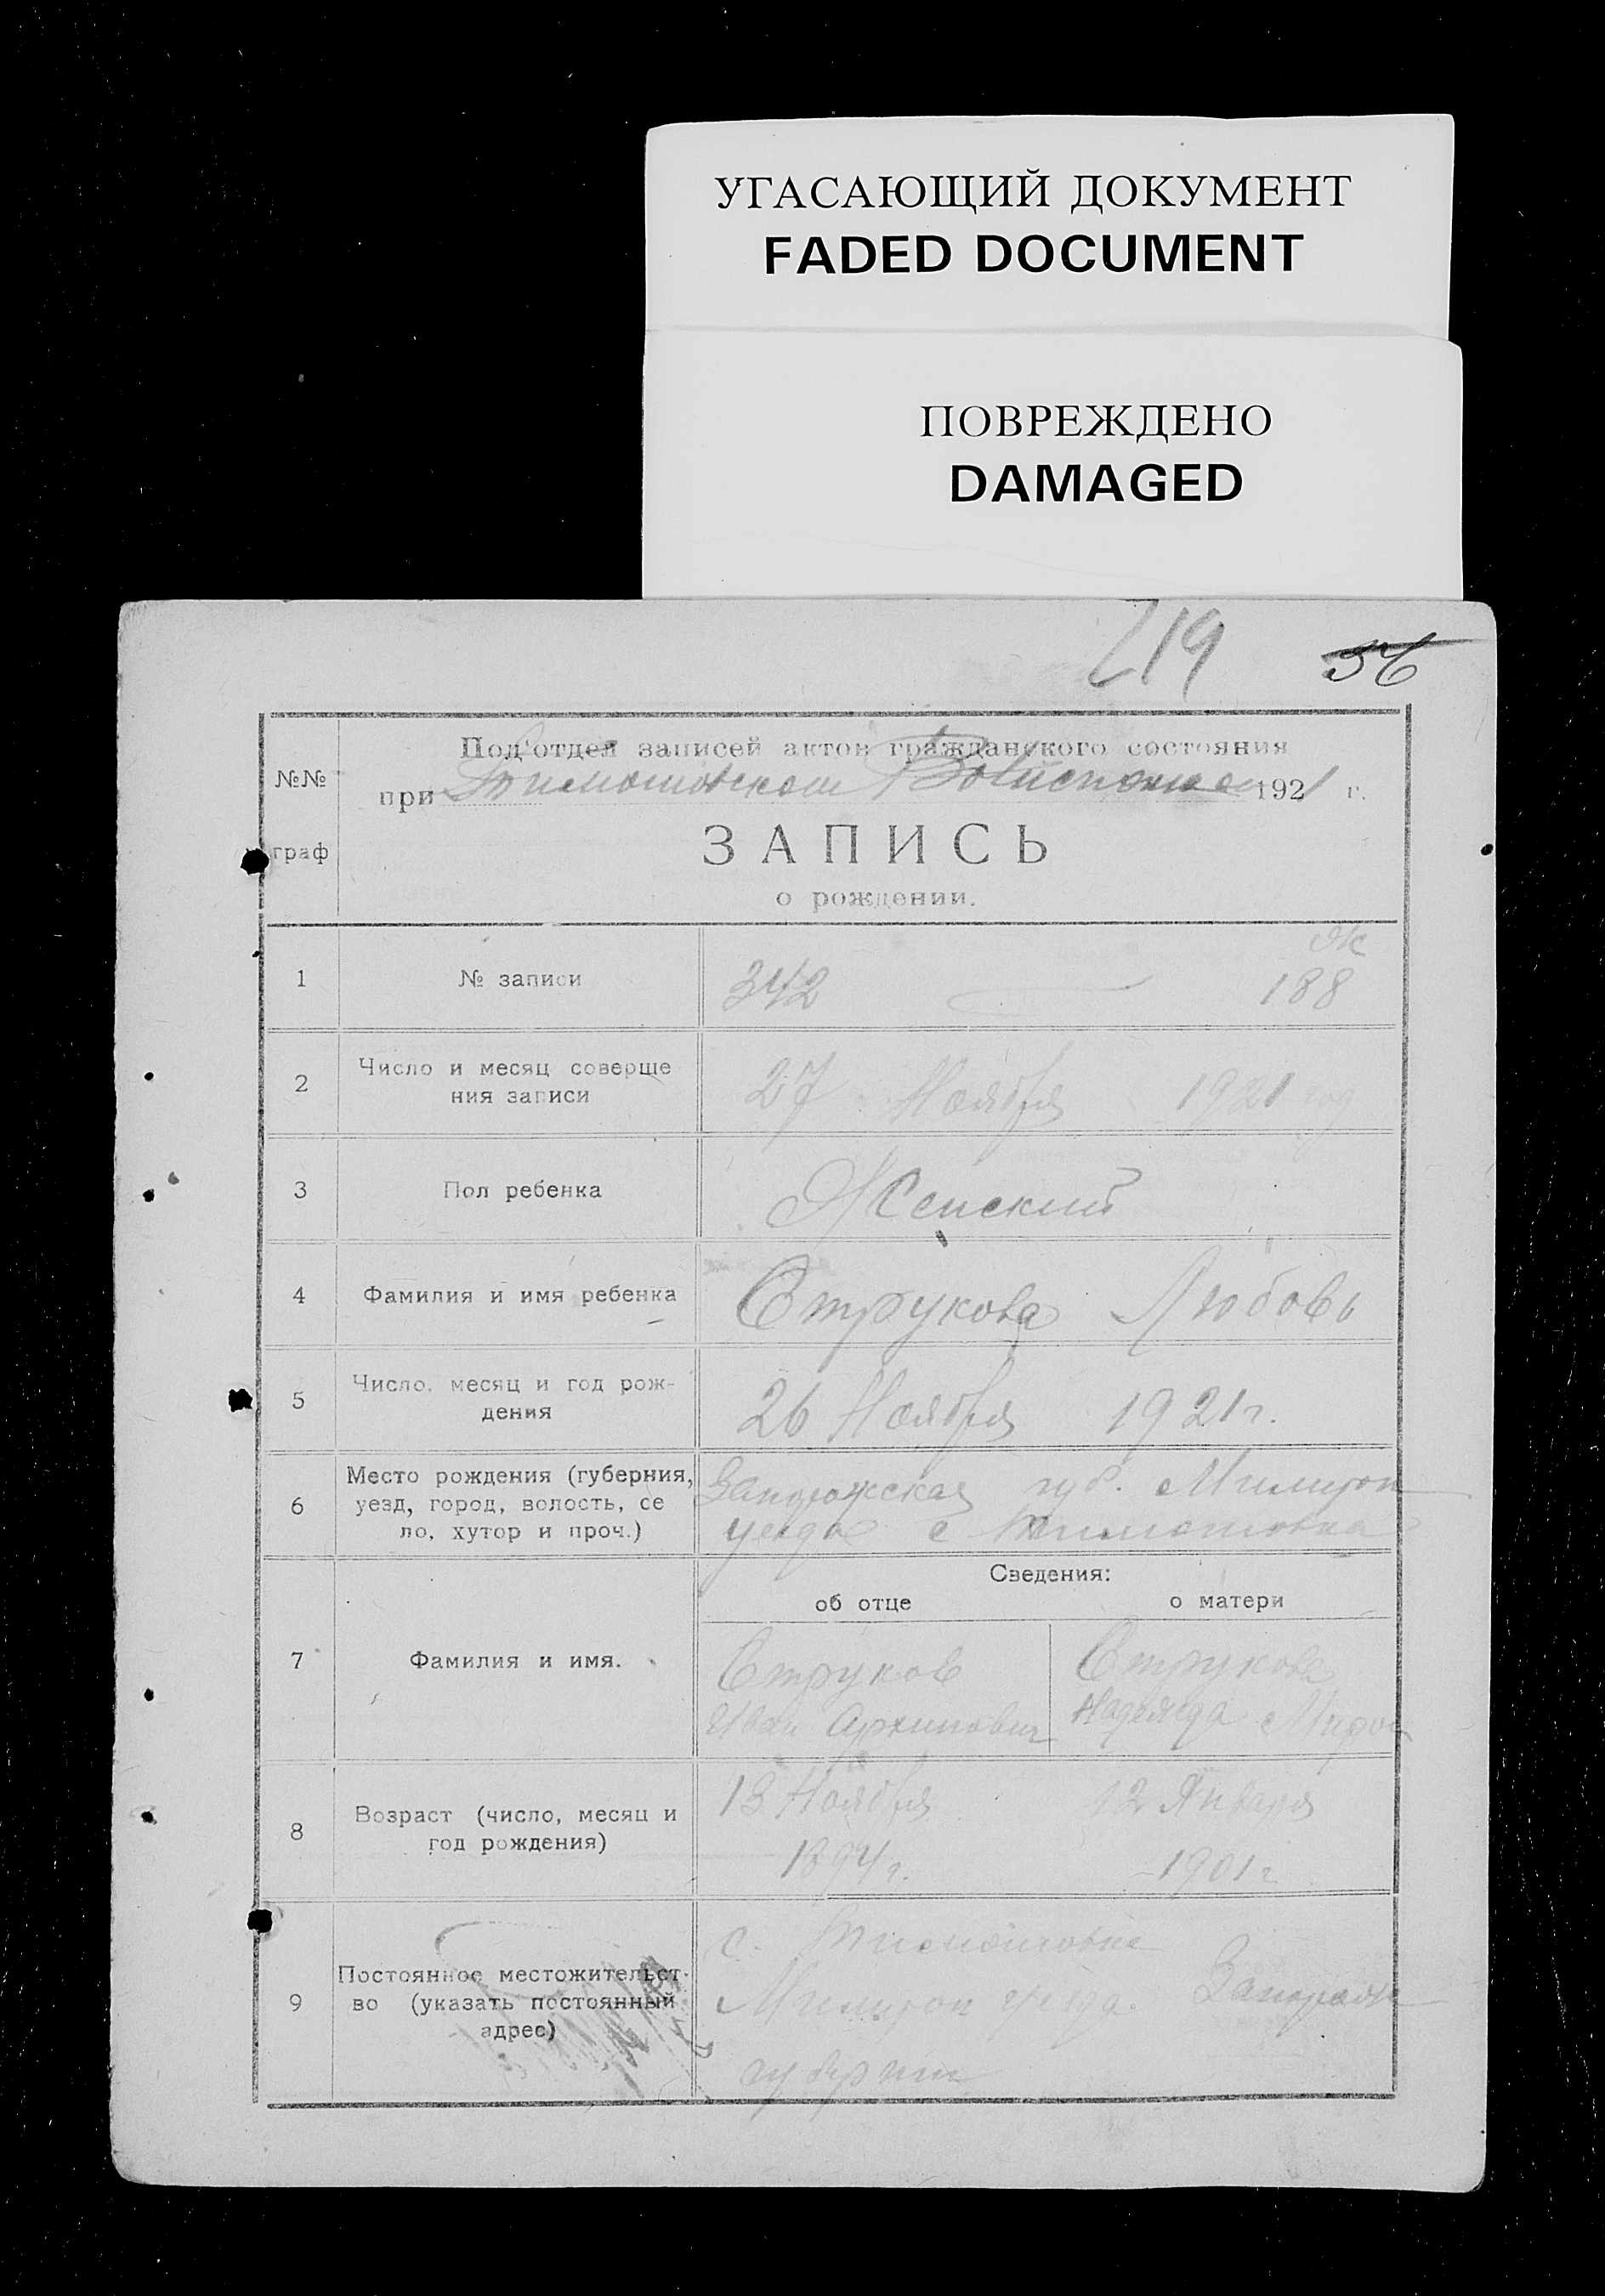 УГАСАЮЩИЙ ДОКУМЕНТ
FADED DOCUMENT
ПОВРЕЖДЕНО
DAMAGED
219 56
Под'отдел записей актов гражданского состояния
№№
при Тимошовском Волисполкоме 1921 г.
граф
ЗАПИСЬ
о рождении.
1 № записи 342 188
Ж
2 Число и месяц соверше
ния записи
27 Ноября 1921 год
3 Пол ребенка Женский
4 Фамилия и имя ребенка Струкова Любовь
5 Число, месяц и год рож-
дения
26 Ноября 1921 г.
6 Место рождения (губерния,
уезд, город, волость, се
ло, хутор и проч.)
Запорожская губ. Мелитоп
уезда с Тимошовка
Сведения:
об отце о матери
7 Фамилия и имя.
Струков Струкова
Иван Архипович Надежда Мирон
8 Возраст (число, месяц и
год рождения)
13 Ноября 12 Января
1894 г. 1901 г
9 Постоянное местожительст-
во (указать постоянный
адрес)
с. Тимошовка
Мелитоп уезда. Запорож
губернии